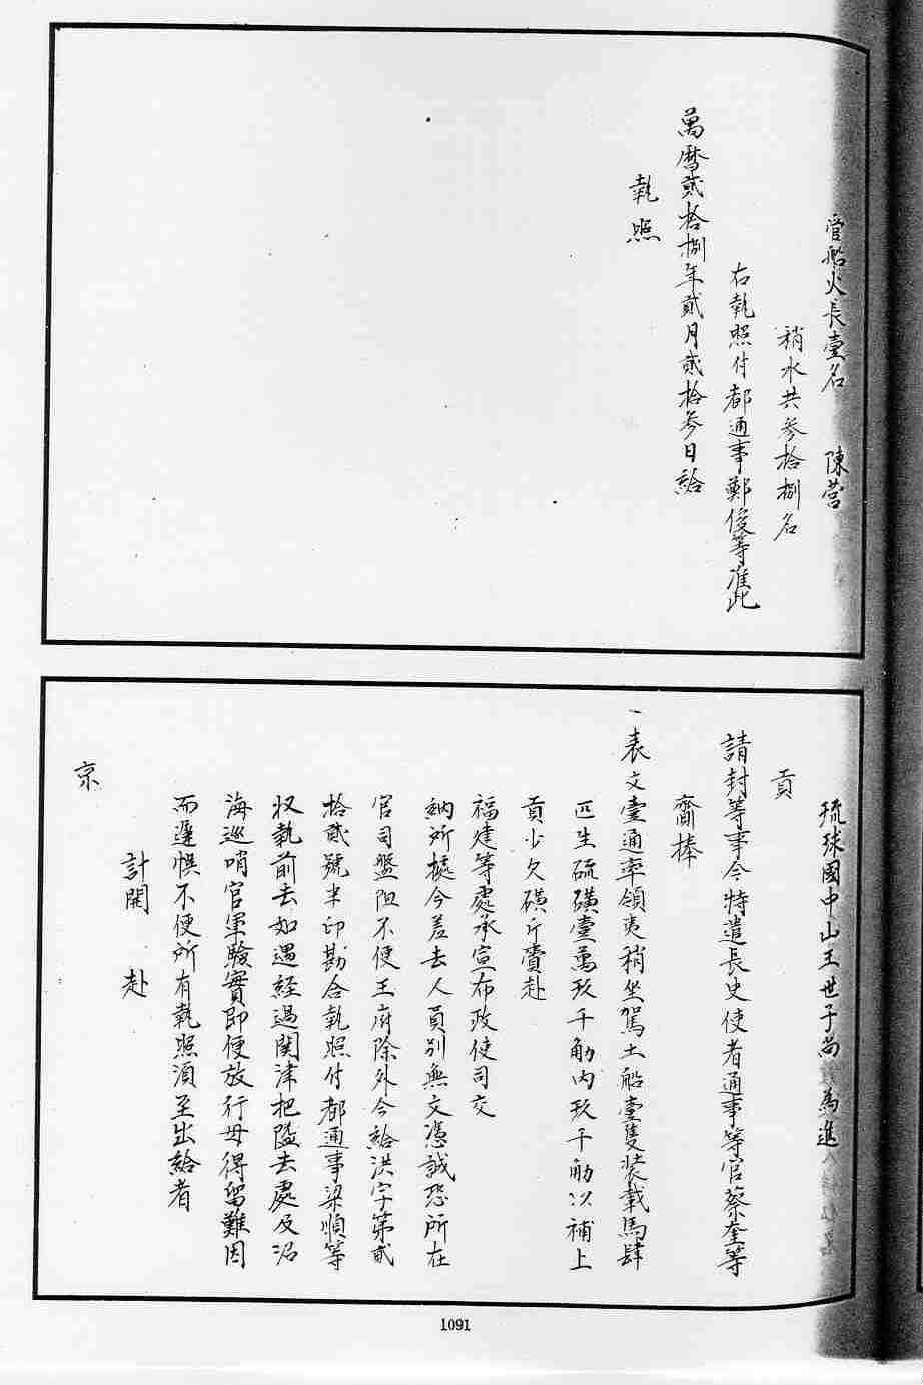 管船火長壹名　陳營
稍水共參拾捌名
右執照付都通事鄭俊等准此
萬曆貳拾捌年貳月貳拾參日給
執照
琉球國中山王世子尚　為進
貢
請封等事今特遣長史使者通事等官蔡奎等
齎捧
一表文壹通率領夷稍坐駕土船壹隻裝載馬肆
匹生硫磺壹萬玖千觔內玖千觔以補上
貢少欠磺斤賚赴
福建等處承宣布政使司交
納所據今差去人員別無文憑誠恐所在
官司盤阻不便王府除外今給洪字第貳
拾貳號半印勘合執照付都通事梁順等
收執前去如遇經過関津把隘去處及沿
海巡哨官軍驗實即便放行毋得留難因
而遲悞不便所有執照湏至出給者
計開　赴
京
1091